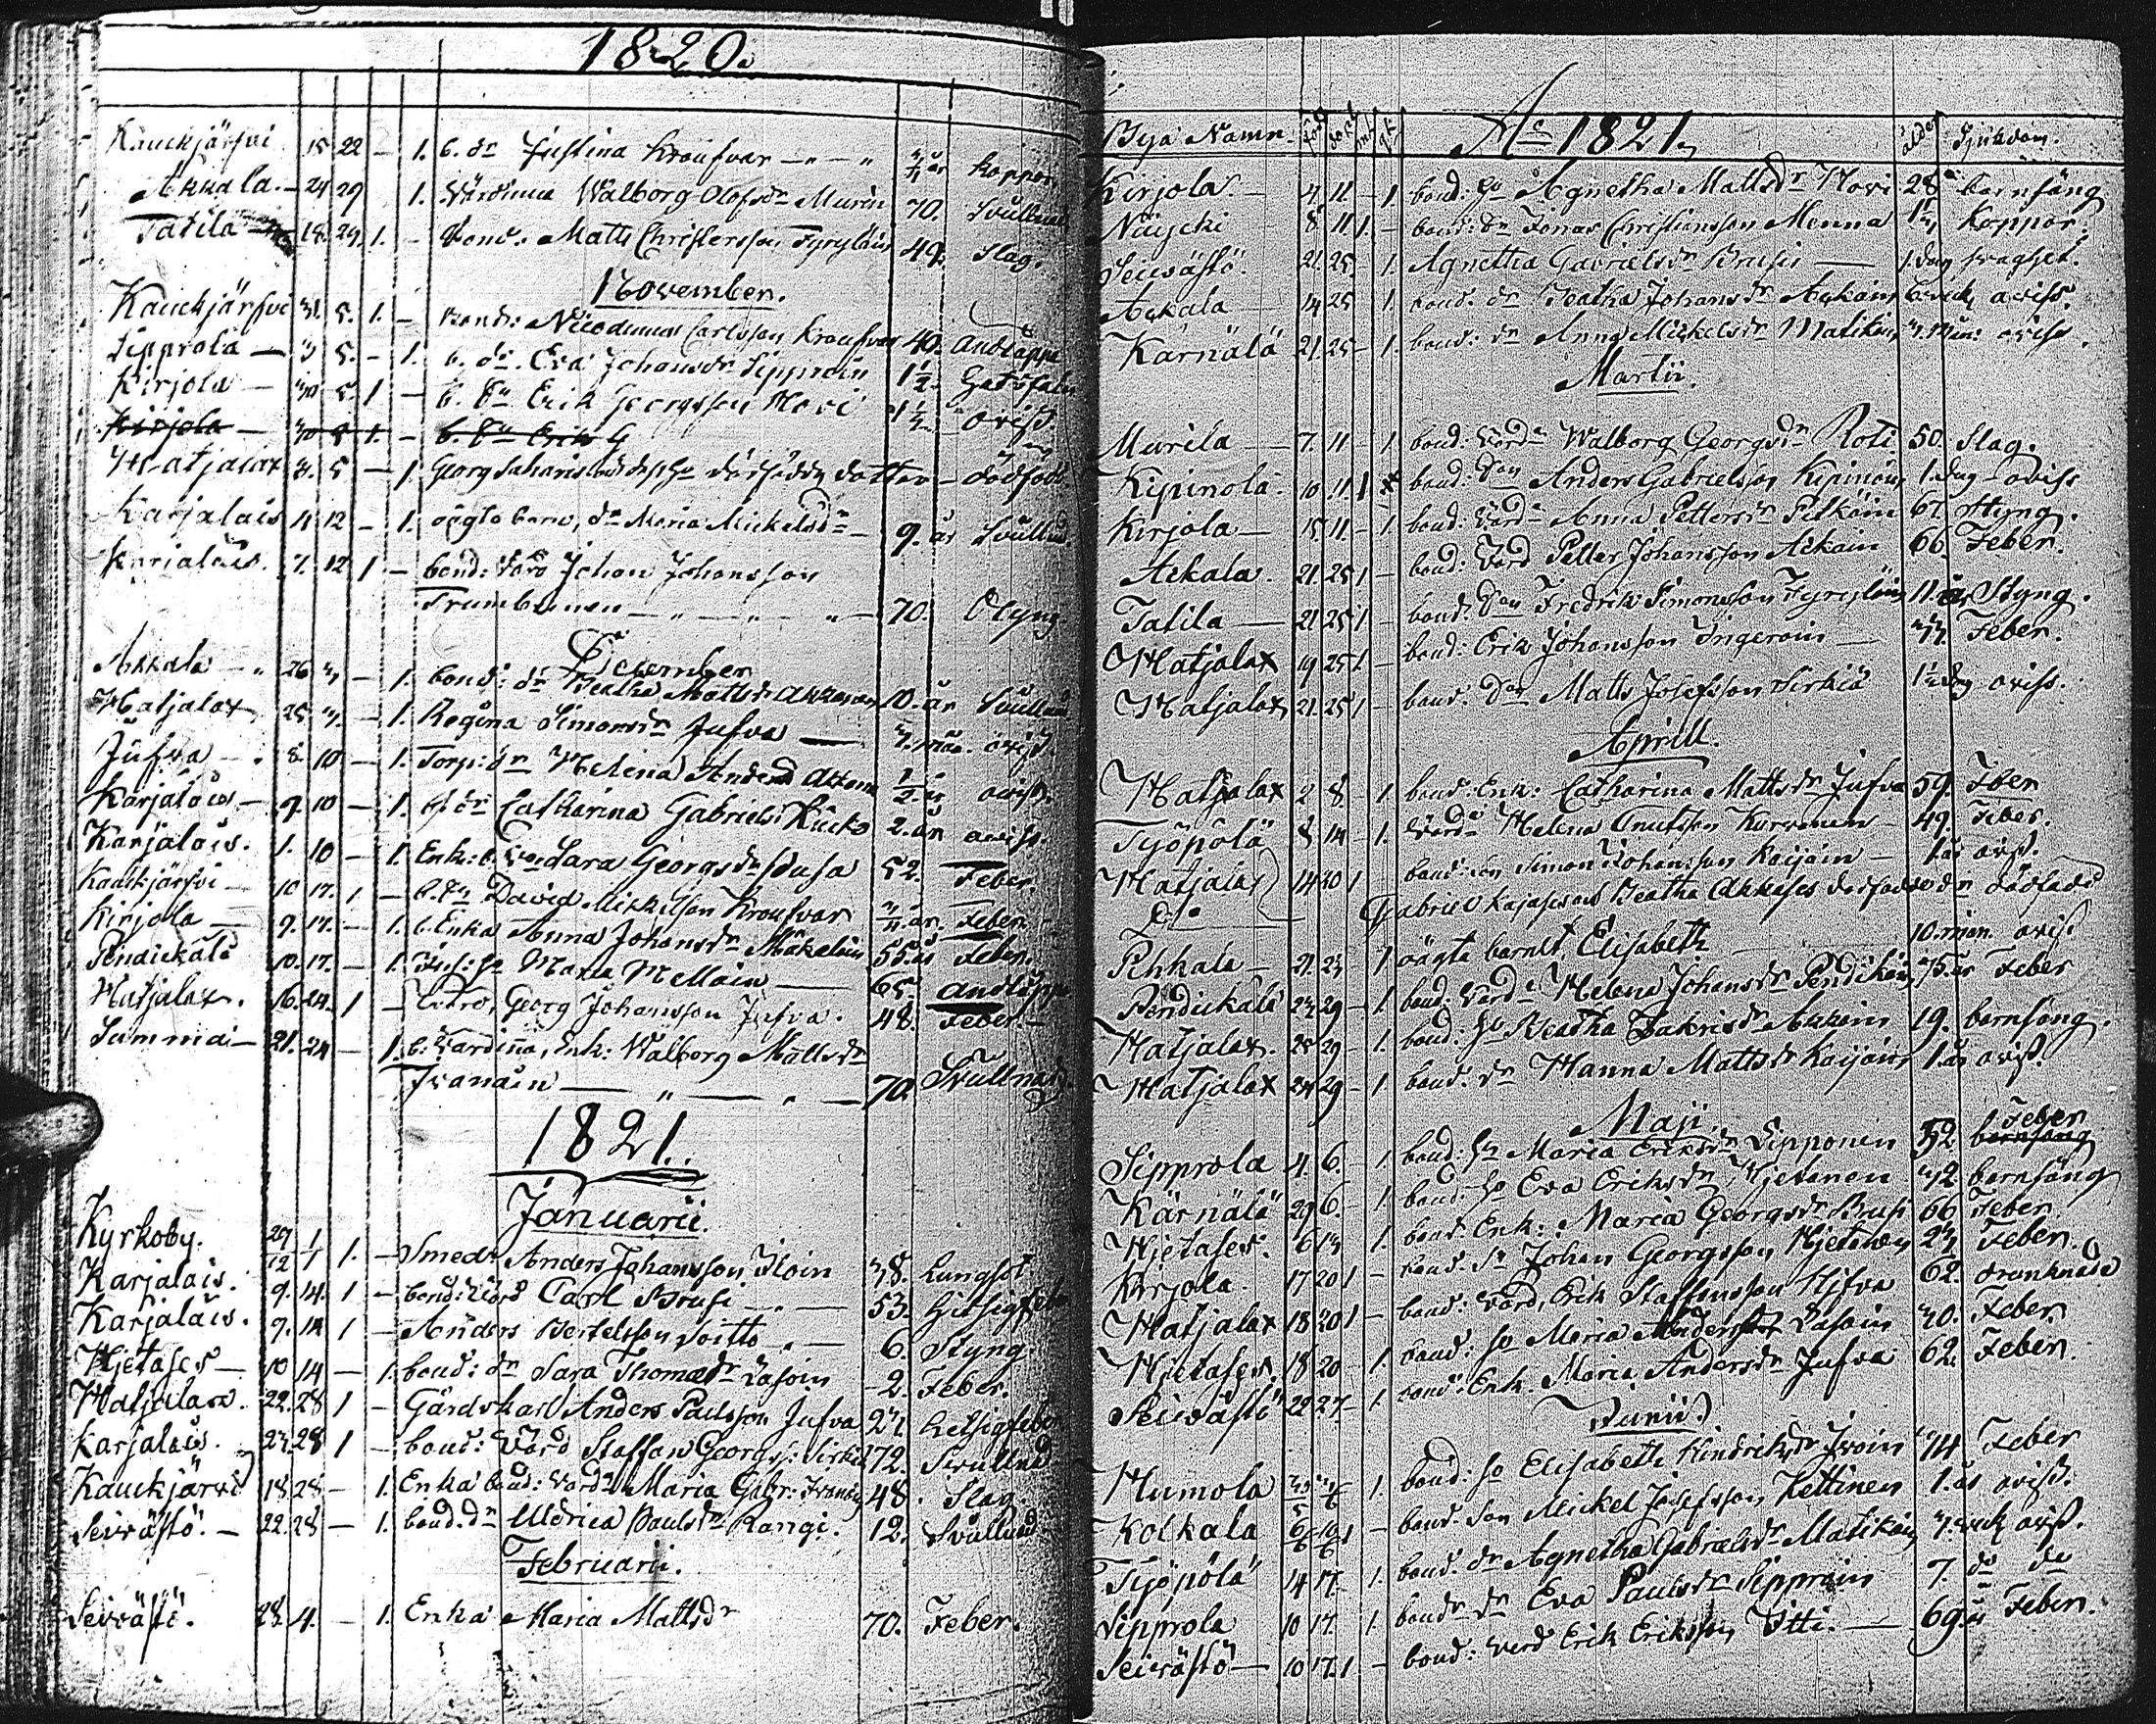 1820.
Kauckjärfvi 15 22 – 1. b. dr Justina Kroufvar – " – " 3/4 år koppor
Akkala. – 24 29 1. Värdinna Walborg Olofsdr Murin 70. Svullnad
Tatila 18. 29. 1. – bond. Matts Christersson Tyryläin 49. Slag.
November.
Kauckjärfvi 31. 5. 1. – bond: Nicodemus Carlsson Kroufvar 40. Andtäppa
Sipprola – 5. – 1. b. dr. Eva Johansdr Sipproin 1 1/2
Kirjola – 30 5. 1 – b. Sn Erik Georgsson Hovi 1 1/2 oviss.
Kirjola – 30 5 1. – b. Sn Erik G
Hatjalax 3. 5 – 1 Georg dotter – dödfödd
Karjalais 4 12 – 1. oägta barn, dr Maria Mickelsdr – 9. år Svullnad.
Karjalais. 7. 12 1 – bond: Värd Johan Johansson
Trumbinen – " – " – " – 70. Styng
December
Akkala – " 26 3 – 1. bond: dr Beatha Mattsdr Akkanen 10. år Svullnad
Hatjalax 25 3. – 1. Regina Simonsdr Jufva – 3. mån. oviss.
Jufva – . 8. 10 – 1. Torp: dr Helena Andersd 1/2 år oviss.
Karjalais – 9. 10 – 1. b. dr Catharina Gabrielsd Kuck 2. år oviss.
Karjalais. 1. 10 – 1. Enk: b. Vär Sara Georgsdr Pusa 52. Feber.
Kauckjärfvi – 10 17. 1 – b. Sn David Mickelsson Kroufvar 3/4. år. Feber.
Kirjola – 9. 17. – 1. b. Enka Anna Johansdr Mäkeläin 55. år Feber.
Pendickälä 10. 17. – 1. Inh: hu Maria Melloin – 65. andtäppa
Hatjalax. 16. 24. 1 – Georg Johansson Jufva. 48. Feber. –
Summa – 21. 24 – 1. b. Värdinna, Enk: Walborg Mattsdr
Ivanain – " – " – 70. Svullnad.
1821.
Januarii.
Kyrkoby. 29/12 1/1 1. – Smed: Anders Johansson Iloin 38. Lungsot.
Karjalais. 9. 14. 1 – bond: Värd Carl Brusi – " – 53. hetsigfeber
Karjalais. 7. 14 1 – Anders Bertelsson Soitto – 6. Styng.
Hjetases – 10 14 – 1. bond: dr Sara Thomædr Lasoin – 2. Feber.
Hatjalax. 22. 28 1 – Gårdskarl Anders Paulsson Jufva 27 hetsigfeber
Karjalais. 23. 28 1 – bond: Värd Staffan Georgs: Sirkiä 72. Svullnad
Kauckjärvi 18 28 – 1. Enka bond: Värda Maria Gabr: Ivanain 48. Slag.
Seivästö. – 22. 28 – 1. bond. dr Uldrica Paulsdr Rangi. 12. Svullnad
Februarii.
Seivästö. 28. 4. – 1. Enka Maria Mattsdr 70. Feber.
Bya Namn Ao 1821, ålder Sjukdom.
Kirjola – 4. 11 – 1 bond: hu Agnetha Mattsdr Hovi 28 barnsäng
Näijcki 8 11 1. – bond: Sn Jonas Christiansson Menna Koppor.
Seivästö. 21. 25 – 1. Agnetha Gabrielsdr Brusi – 1. dag svaghet.
Ackala 14 25 1. bond. dr Beatha Johansdr Ackain 6. vick. oviss.
Kärnälä 21. 25 – 1. bond: dr Anna Mickelsdr Matikain 3. mån: oviss.
Martii.
Murila – 7. 11 – 1 bond: Värda Walborg Georgsdr Roti 50. Slag.
Kipinola – 10. 11. 1 x bond: Son Anders Gabrielsson Kipinoin 1. dag oviss
Kirjola – 15. 11 – 1. bond: Värda Anna Pettersdr Pitkäin 67. Styng.
Ackala. 21. 25 1 – bond: Värd Petter Johansson Ackain 66. Feber.
Tatila – 21 25 1 – bond: Son Fredrik Simonsson Tyryläin 11. år Styng.
Hatjalax 19 25 1. – bond: Erik Johansson Ingeroin – 37. Feber.
Hatjalax, 21. 25 1 – bond: Son Matts Josefsson Sirkiä 1 1/2 dag oviss.
Aprill.
Hatjalax 2 8. 1 bond: Enk: Catharina Mattsdr Jufva 59. Feber
Työpölä 8 14 – 1. Värda Helena Knutsson Kurvonen – 49. Feber.
Hatjalax 14 20 1 bond: Son Simon Johansson Kaijain – 1. år oviss.
Do – Gabriel Beatha Akkases dödfödde dr dödfödd
Pihkala – 21. 23 1 oägta barnet, Elisabeth 10. mån. oviss
Pendickälä 23 29 – 1. bond: Värda Helena Johansdr Pendikäin, 75. år Feber
Hatjalax. 25 29 – 1. bond: hu Beatha Zakrisdr Akkain 19. barnsäng.
Hatjalax 24 29 – 1. bond: dr Hanna Mattsdr Kaijain, 1. år oviss.
Maji. Feber
Sipprola 4 6. – 1. bond: hu Maria Ericsdr Sipponen 52 barnsäng
Kärnälä 29 6. – 1. bond: hu Eva Eriksdr Hjetanen 42 barnsäng
Hjetases. 6 13 1. bond: Enk: Maria Georgsdr Brusi 66 Feber.
Kirjola. 17 20 1 – bond: Sn Johan Georgsson Hjetanen 23 Feber.
Hatjalax 18 20 1 – bond: Värd, Erik Staffansson Hjfva 62. drunknade
Hjetases. 18 20 – 1. bond: hu Maria Andersdr Lasoin 40. Feber.
Seivästö 22 27 – 1. bond: Enk. Maria Andersdr Jufva 62. Feber.
Junii.
Humola 1. bond: hu Elisabeth Hindriksdr Ivoin 74 Feber
Kolkala 6/6 10/6 1 – bond. Son Mickel Josefsson Kettinen 1. år oviss.
Työpölä 14 17. – 1. bond: dr Agnetha Gabrielsdr Matikain 3. vick oviss.
Sipprola 10 17. 1. bond: dr Eva Paulsdr Sipproin 7. do do
Seivästö – 10 17. 1 – bond: Värd Erik Eriksson Itti. – 69. år Feber.